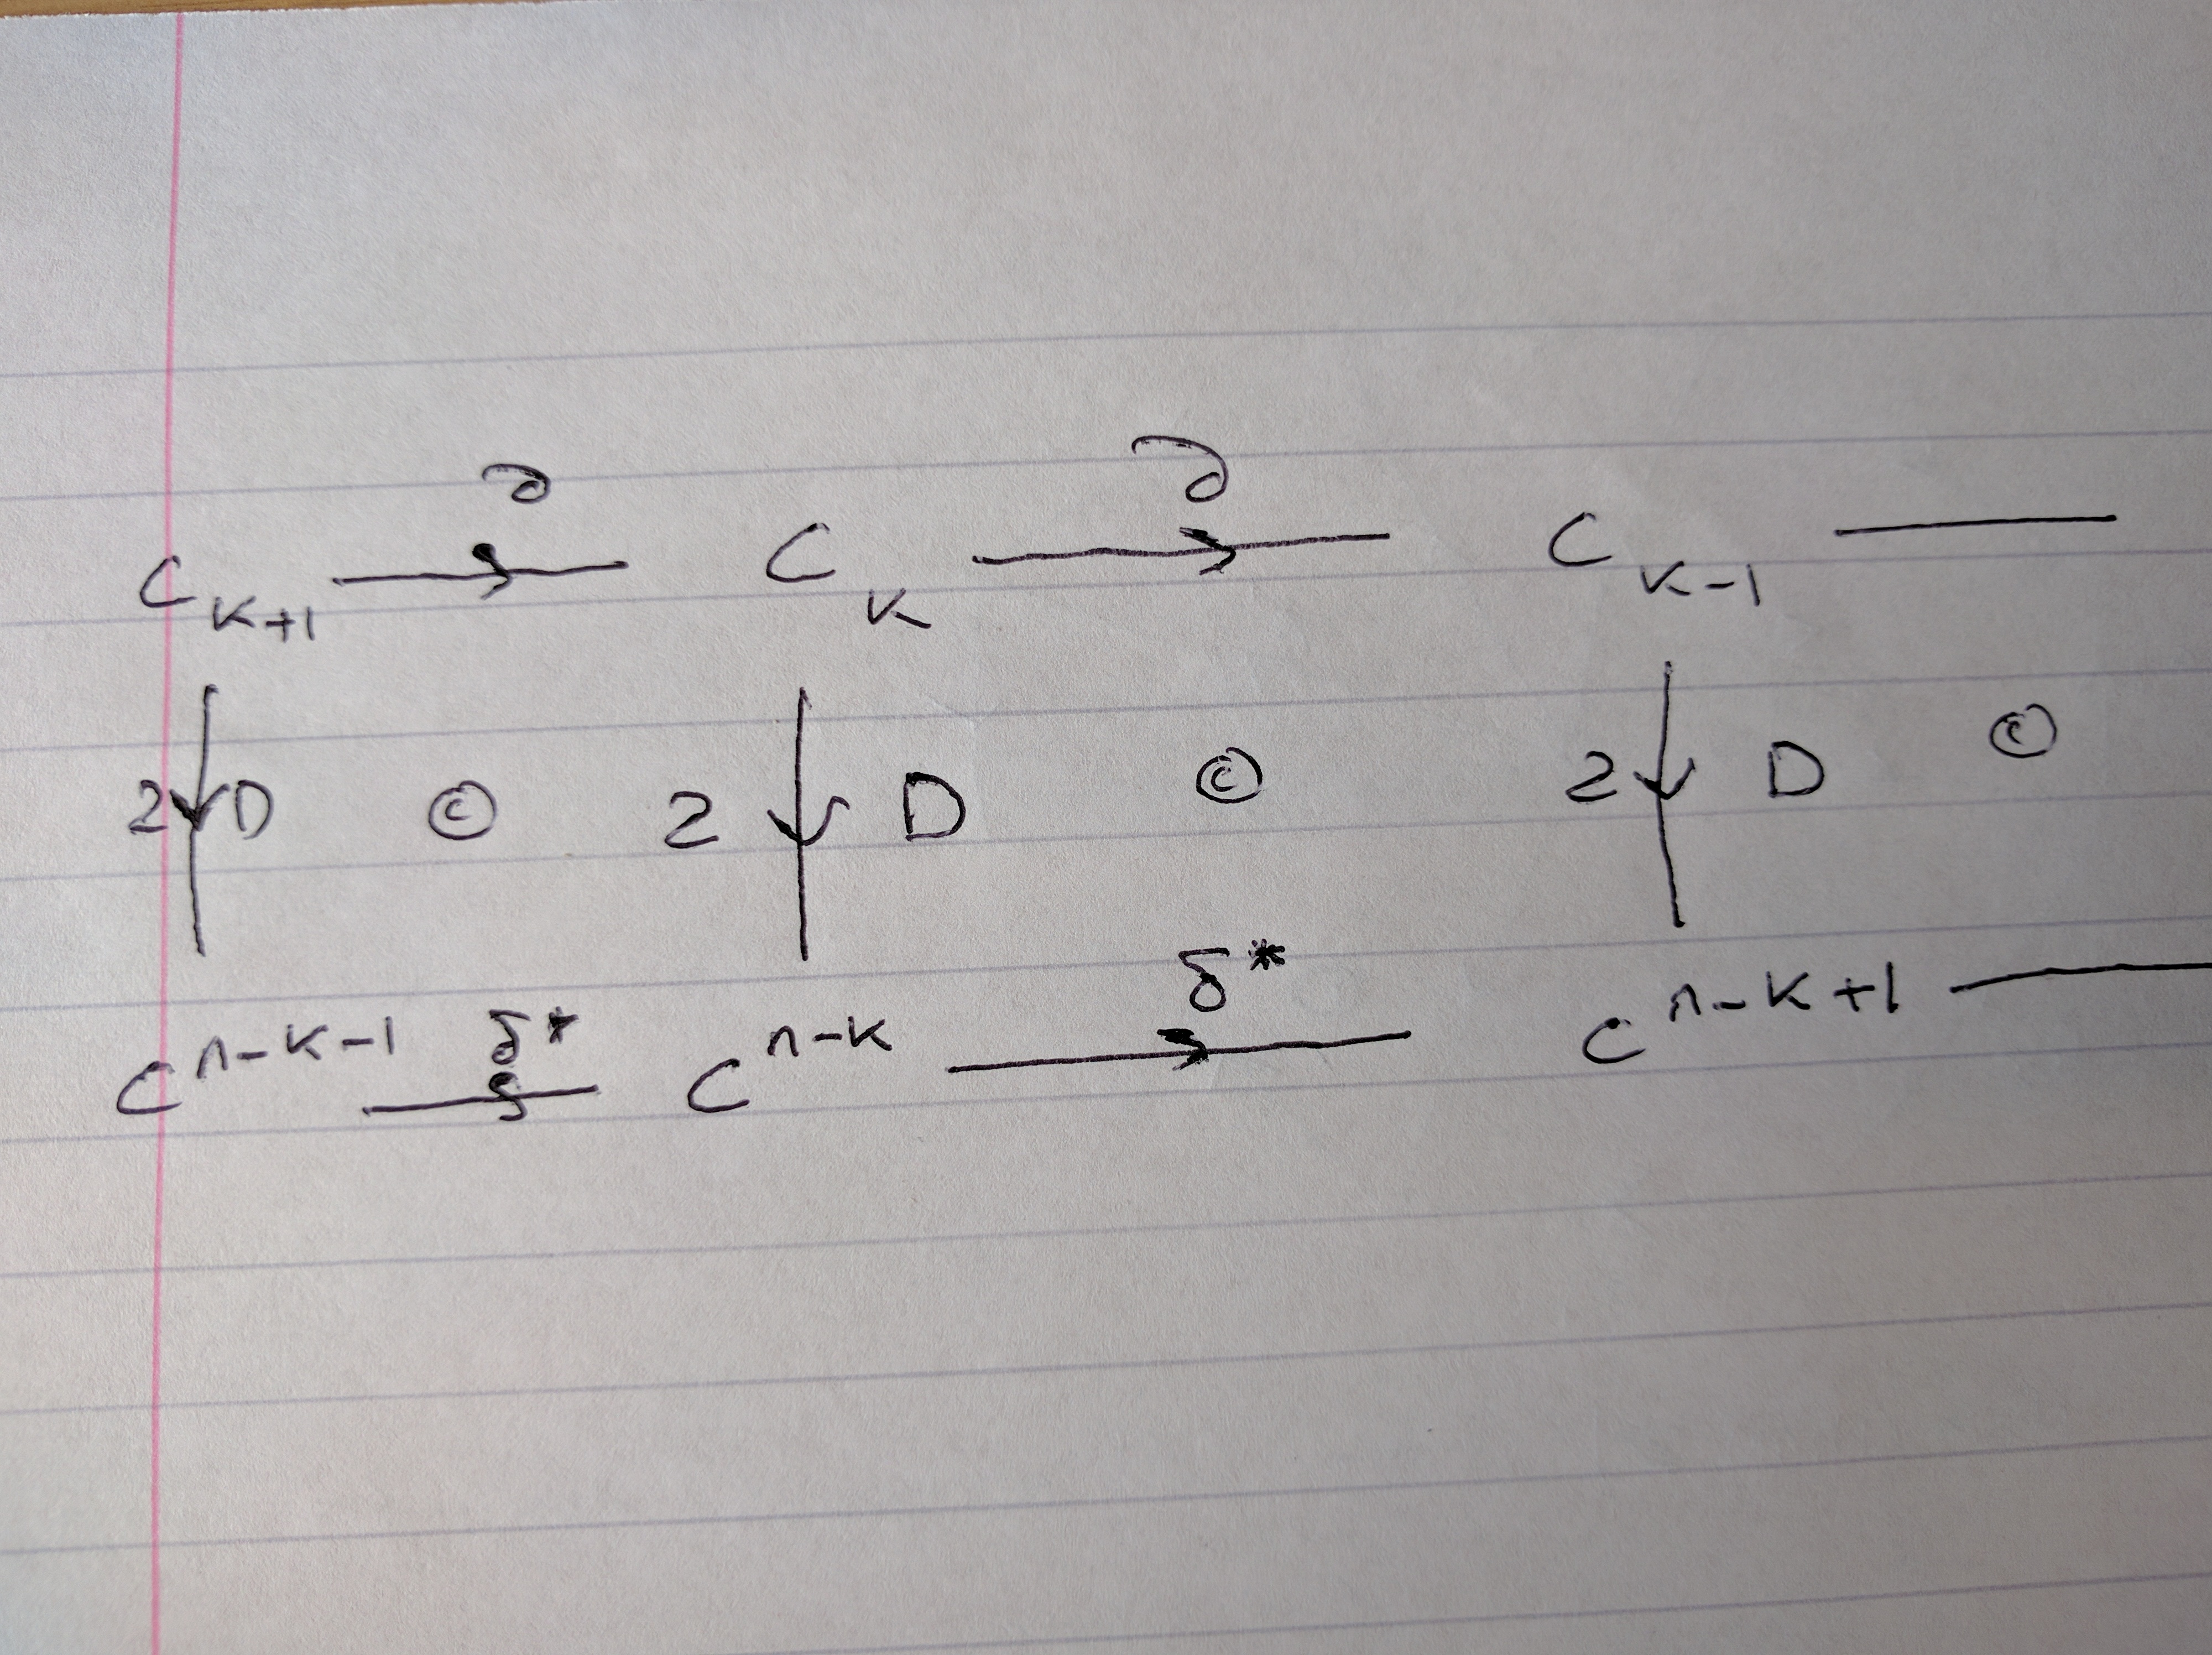 ∂ ∂
C_{k+1} → C_k → C_{k-1} —
2 ↓ D © 2 ↓ D © 2 ↓ D ©
δ* δ*
C^{n-k-1} → C^{n-k} → C^{n-k+1} —